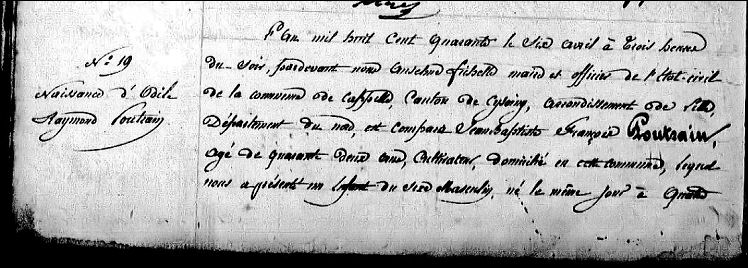 N.° 19
Naissance d'Odile
Raymond Poutrain
L'an mil huit Cent quarante le Six avril à trois heures
du soir, pardevant nous anselme fichelle maire et officier de l'état-civil
de la commune de Cappelle, Canton de Cysoing, arrondissement de Lille,
Département du nord, est comparu Jean-baptiste François Poutrain,
agé de quarante deux ans, Cultivateur, domicilié en cette commune, lequel
nous a présenté un Enfant du sexe Masculin, né le même jour à quatre